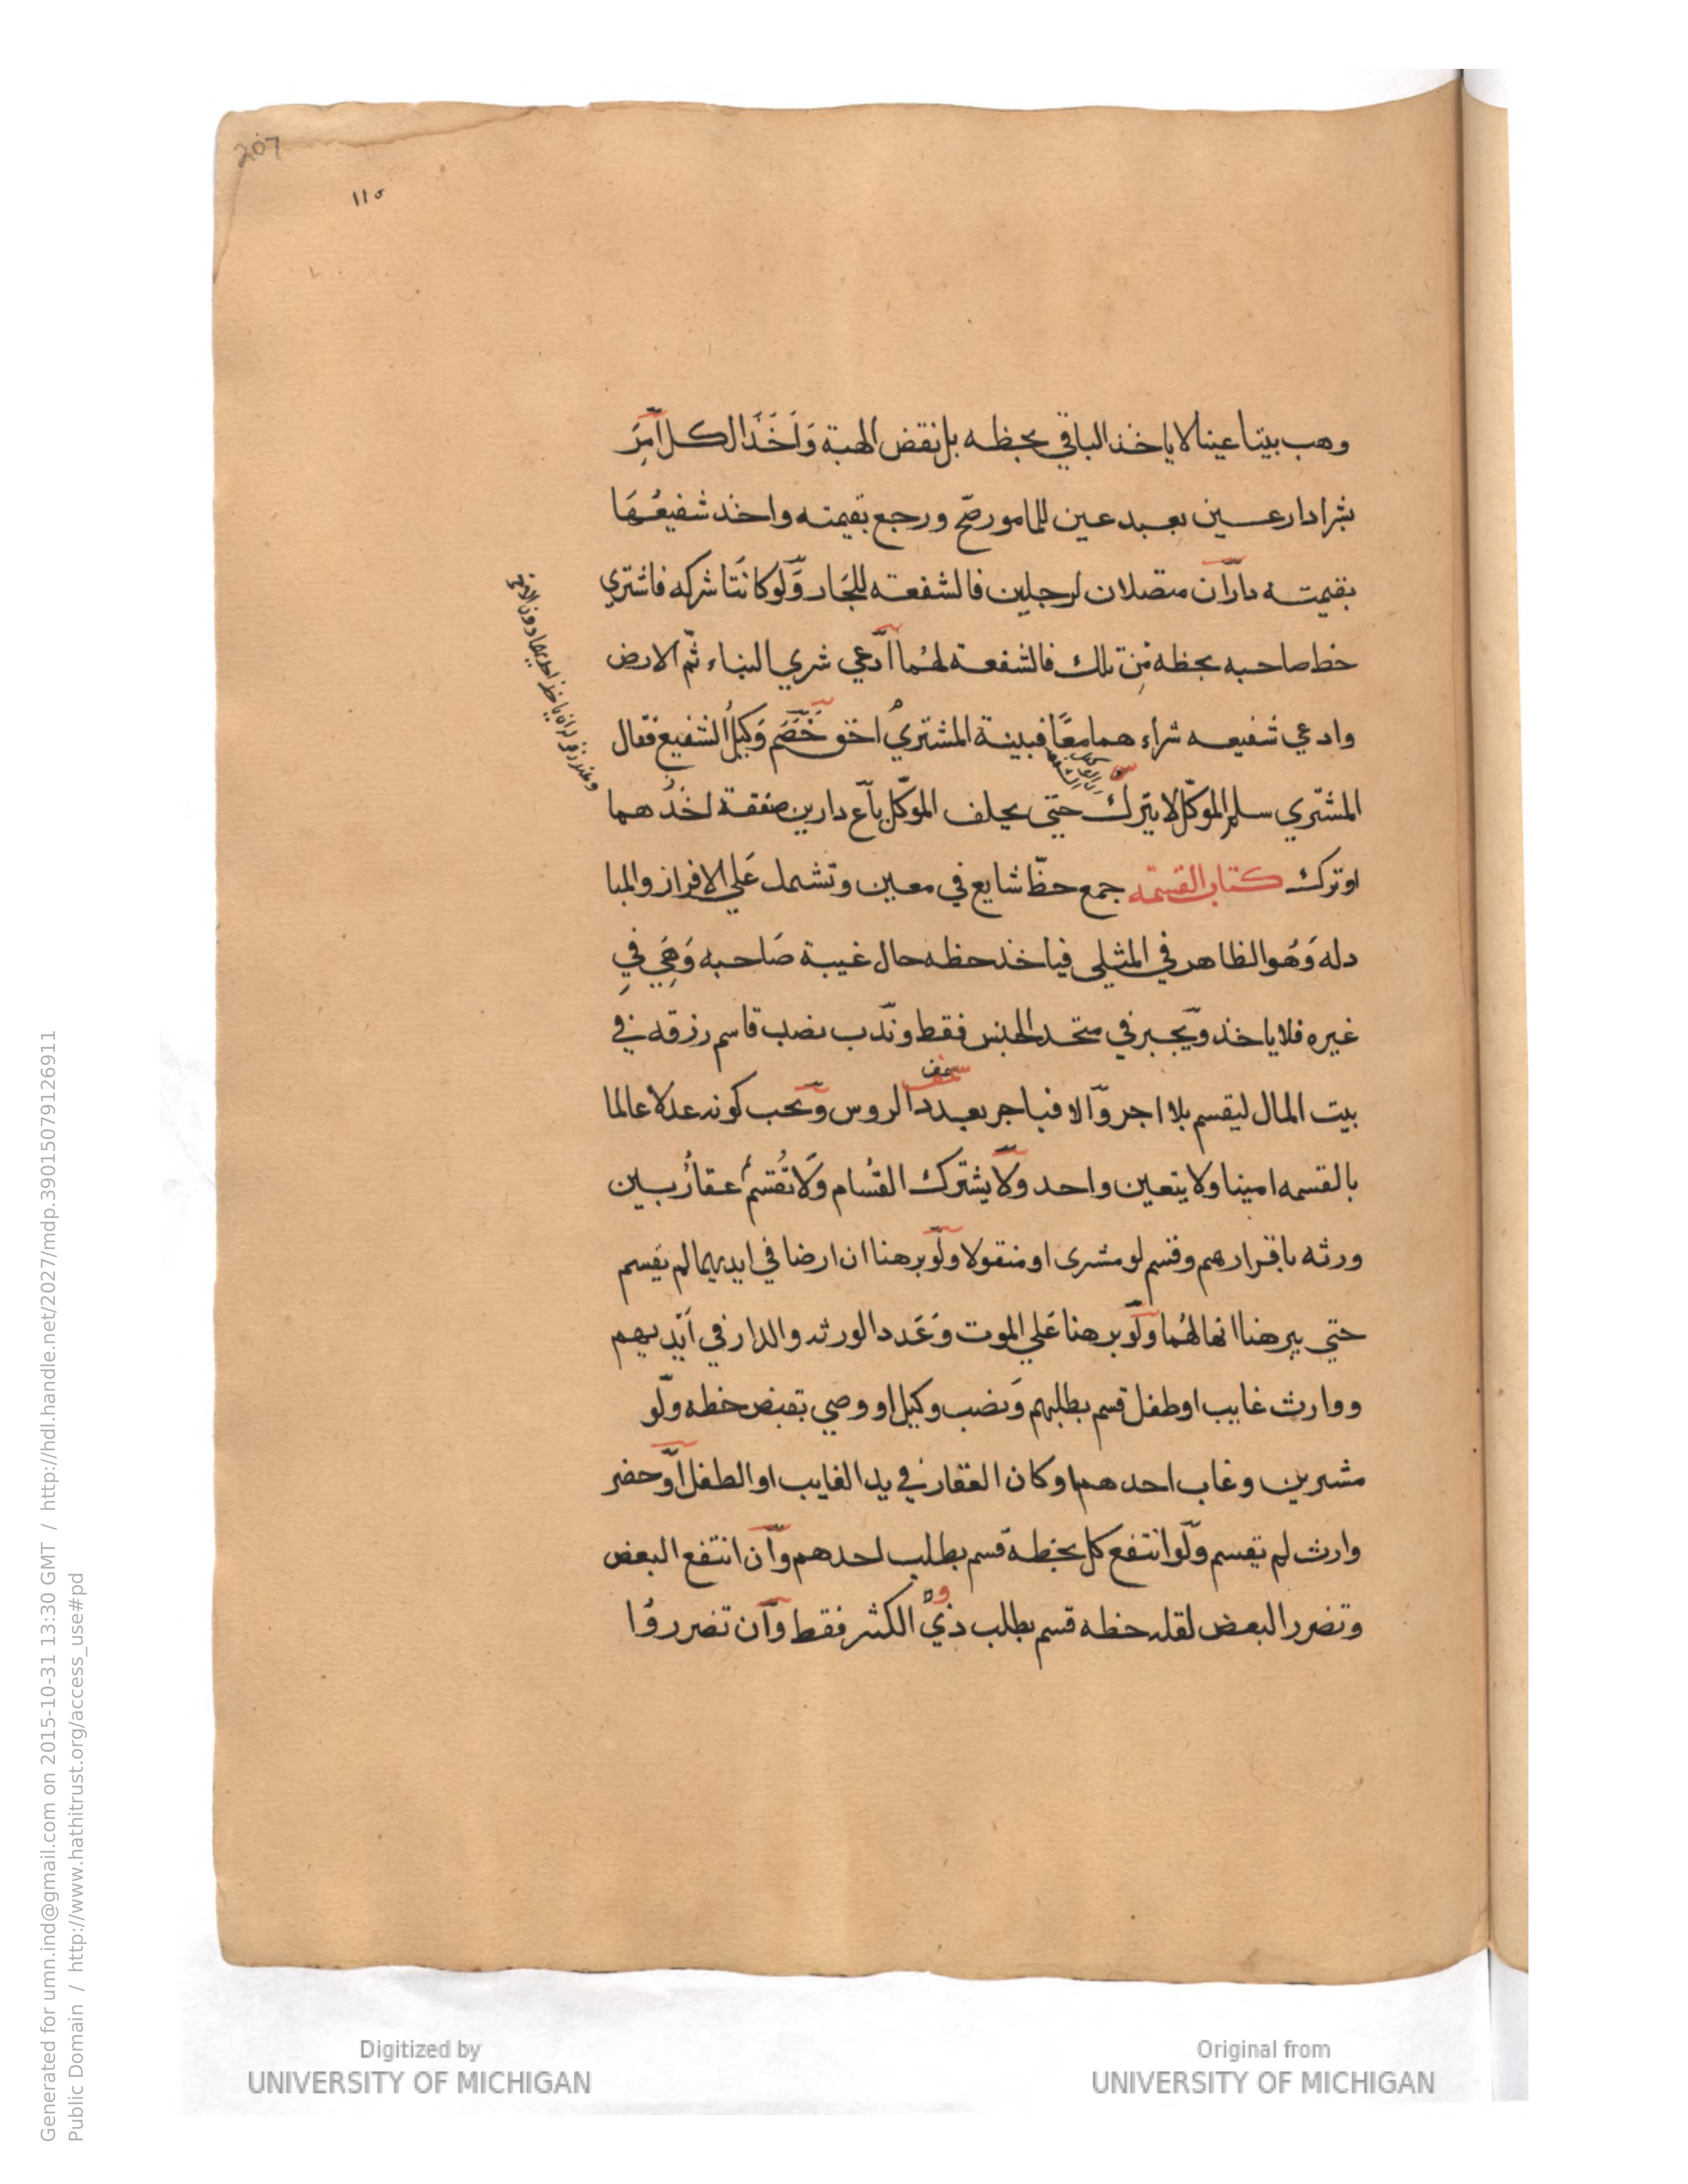 207
١١٥
وهب بيتا عينا لا ياخذ الباقي بحظه بل نقض الهبة وَاَخَذَ الكل اَمَرَ
بشرا دار عين بعبد عين للمامور صحّ ورجع بقيمته واخذ شفيعُهَا
بقيمته داران متصلان لرجلين فالشفعة للجَار وَّلو كانَتا شركه فاشتري
حظ صاحبه بحظه مِن تلك فالشفعة لهُما ادّعي شري البناء ثمّ الارض
وادعي شفيعه شراءهما معًا فبينة المشتريْ احق خَصَّم وَكيلُ الشفيع فقال
المشتري سلم الموكّل لا يترك حتي يحلف الموكّل باع دارين صفقة اخذُهما
او ترك كتاب القسمة جمع حظّ شايع في معين وتشمل عَلي الافراز والمبا
دله وَهُو الظاهر في المثلي فياخذ حظه حال غيبة صَاحبه وَهَِي فيِ
غيره فلا ياخذ ويجبر في متحد الجنس فقط وندب نصب قاسم رزقه في
بيت المال ليقسم بلا اجر وّالا فباجر بعدد الروس ويجب كونه عدلا عالما
بالقسمه امينا ولا يتعين واحد ولا يشترك القُسام وَلَا تُقسَمُ عقارُ بين
ورثه باقرارهم وقسم لو مشرى او منقولا ولو برهنا ان ارضا في ايديهما لم تقسم
حتي يبرهنا انها لهُما ولو برهنا عَلي الموت وَعَدد الورثه والدار في اَيديهم
ووارث غايب او طفل قسم بطلبهم وَنصب وكيل او وصي بقبض حظه ولّو
مشرين وغاب احدهما وكان العقار في يد الغايب او الطفل اَو حضر
وارث لم تقسم ولّو انتفع كل بحظه قسم بطلب احدهم وان انتفع البعض
وتضرر البعض لقله حظه قسم بطلب ذيْ الكثر فقط وان تضرروُا
Generated for umn.ind@gmail.com on 2015-10-31 13:30 GMT / http://hdl.handle.net/2027/mdp.39015079126911
Public Domain / http://www.hathitrust.org/access_use#pd
Digitized by
UNIVERSITY OF MICHIGAN
Original from
UNIVERSITY OF MICHIGAN